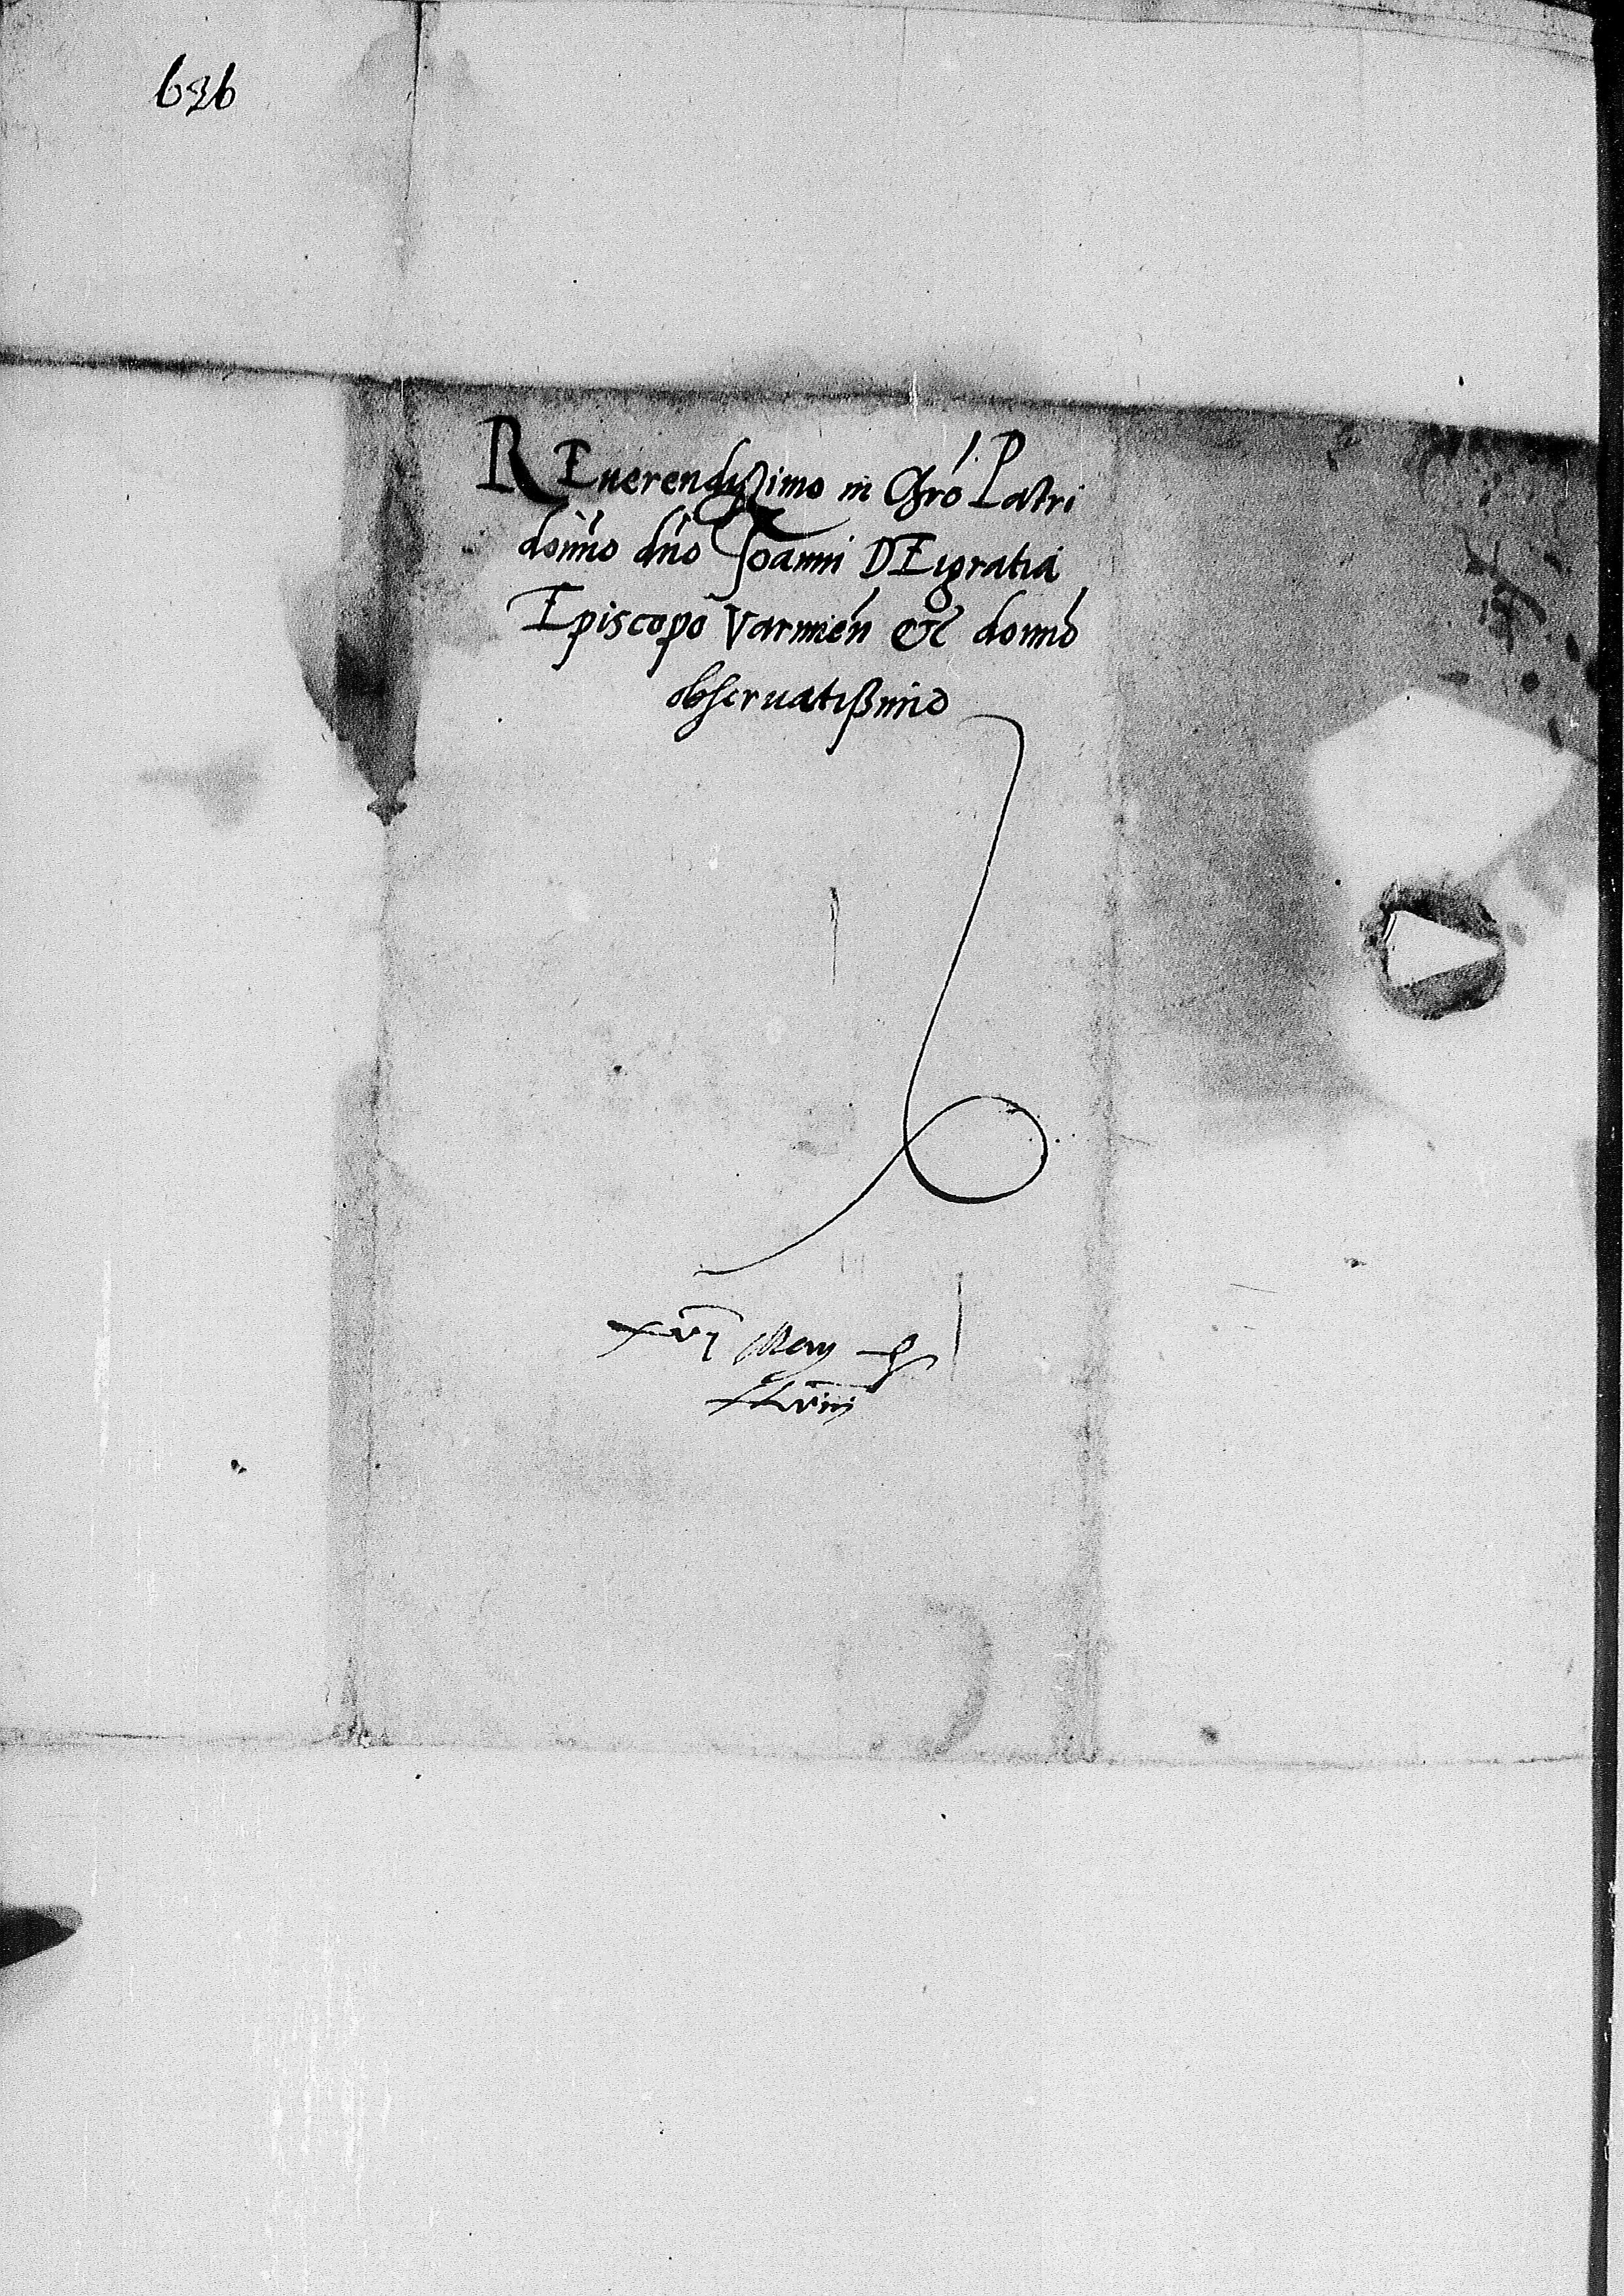 636
REuerendissimo in Chro Patri
domino dno Ioanni DEi gratia
Episcopo Varmien etc domino
obseruatissimo
xvi May
xlviii